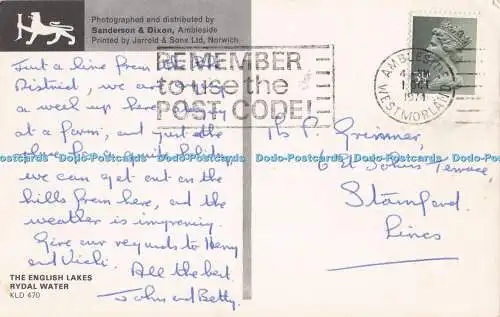 Photographed and distributed by
Sanderson & Dixon, Ambleside
Printed by Jarrold & Sons Ltd, Norwich
REMEMBER
to use the
POST CODE!
AMBLESIDE
WESTMORLAND
Just a line from the Lake
District, we are
a week up here, staying
at a farm, and just the
we can get out on the
hills from here, and the
weather is improving.
Give our regards to Henry
and Vicki.
All the best.
John and Betty.
THE ENGLISH LAKES
RYDAL WATER
KLD 470
P. Grimmer,
6 St Johns Terrace,
Stamford
Lincs
Postcards Databases Postcards Databases Postcards Databases Postcards Databases